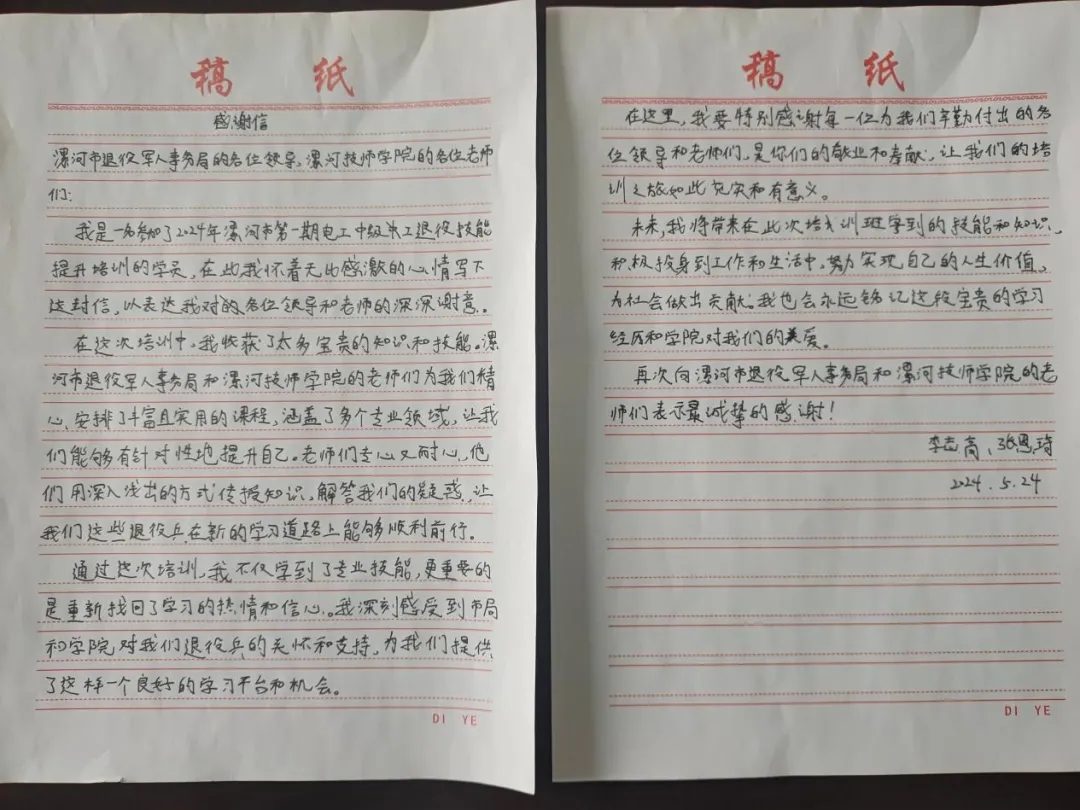 稿 纸
感谢信
漯河市退役军人事务局的各位领导、漯河技师学院的各位老师
们:
我是一名参加了2024年漯河市第一期电工中级技工退役技能
提升培训的学员,在此我怀着无比感激的心情写下
这封信,以表达我对的各位领导和老师的深深谢意。
在这次培训中,我收获了太多宝贵的知识和技能。漯
河市退役军人事务局和漯河技师学院的老师们为我们精
心安排了丰富且实用的课程,涵盖了多个专业领域,让我
们能够有针对性地提升自己。老师们专心又耐心,他
们用深入浅出的方式传授知识,解答我们的疑惑,让
我们这些退役兵在新的学习道路上能够顺利前行。
通过这次培训,我不仅学到了专业技能,更重要的
是重新找回了学习的热情和信心。我深刻感受到市局
和学院对我们退役兵的关怀和支持,为我们提供
了这样一个良好的学习平台和机会。
DI YE
稿 纸
在这里,我要特别感谢每一位为我们辛勤付出的各
位领导和老师们,是你们的敬业和奉献,让我们的培
训之旅如此充实和有意义。
未来,我将带来在此次培训班学到的技能和知识,
积极投身到工作和生活中,努力实现自己的人生价值,
为社会做出贡献。我也会永远铭记这段宝贵的学习
经历和学院对我们的关爱。
再次向漯河市退役军人事务局和漯河技师学院的老
师们表示最诚挚的感谢!
李志高、张恩琦
2024.5.24
DI YE